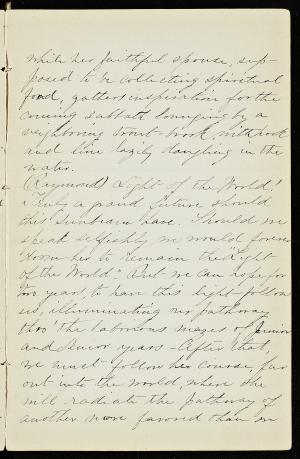 while her faithful spouse, sup-
posed to be collecting spiritual
food, gathers inspiration for the
coming sabbath lounging by a
neighboring trout-brook, with rod
and line lazily dangling in the
water.
(Raymond) Light of the World!
Truly a grand future should
this Sunbeam have. Should we
speak selfishly, we would forever
doom her to remain the "Light
of the World." But we can hope for
two years, to have this light follow
us, illuminating our pathway
thro' the laborious mazes of Junior
and Senior years - After that,
we must follow her course, far
out into the world, where she
will radiate the pathway of
another more favored than we